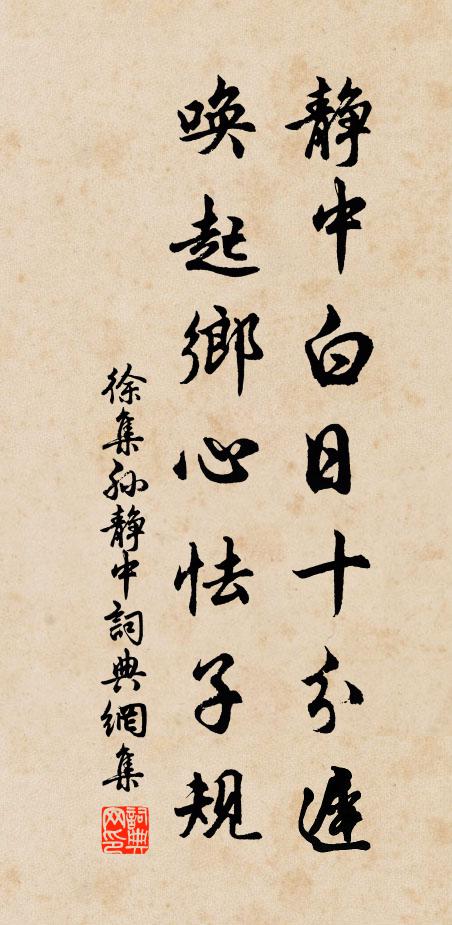 靜中白日十分遲
喚起鄉心怯子規
徐集孫靜中詞典網集
詞典网印